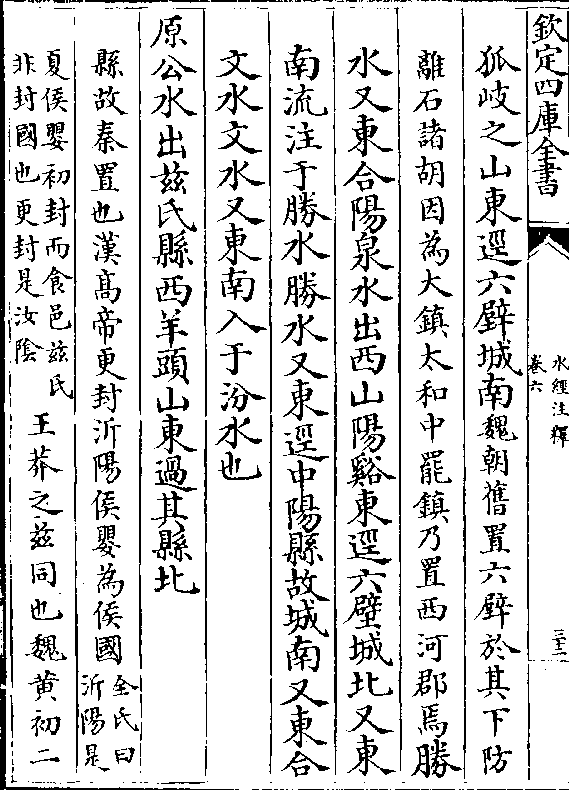 欽定四庫全書
水經注釋
卷六
三十二
狐岐之山東逕六壁城南魏朝舊置六壁於其下防
離石諸胡因為大鎮太和中罷鎮乃置西河郡焉勝
水又東合陽泉水出西山陽谿東逕六壁城北又東
南流注于勝水勝水又東逕中陽縣故城南又東合
文水文水又東南入于汾水也
原公水出兹氏縣西羊頭山東過其縣北
縣故秦置也漢高帝更封沂陽侯嬰為侯國全氏曰沂陽是
夏侯嬰初封而食邑兹氏非封國也更封是汝陰王莽之兹同也魏黄初二